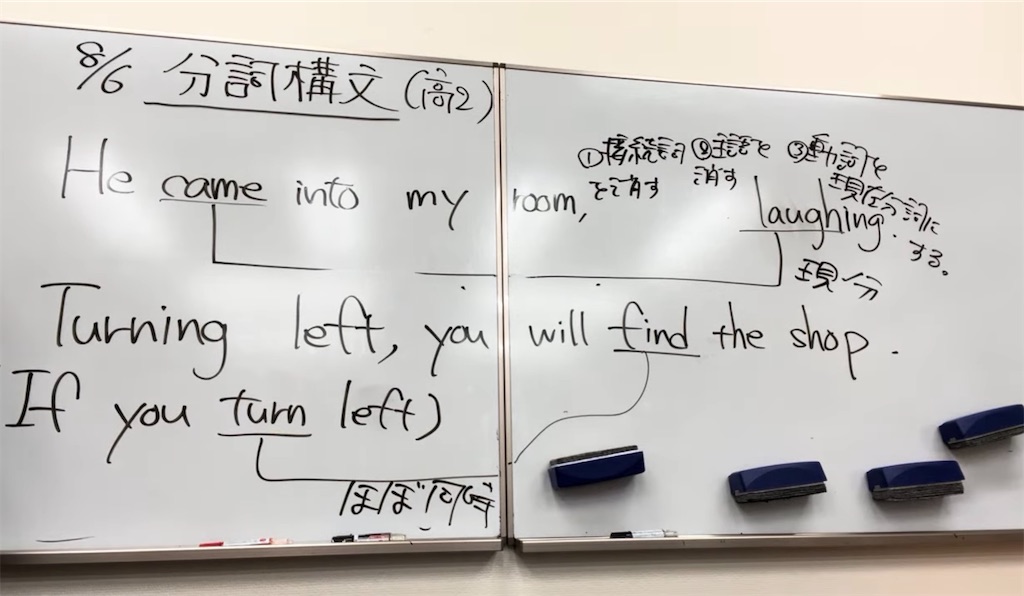 8/6 分詞構文 (高2)
①接続詞を消す
②主語を消す
③動詞を現在分詞にする。
He came into my room, laughing.
現分
Turning left, you will find the shop.
If you turn left)
ほぼ同時